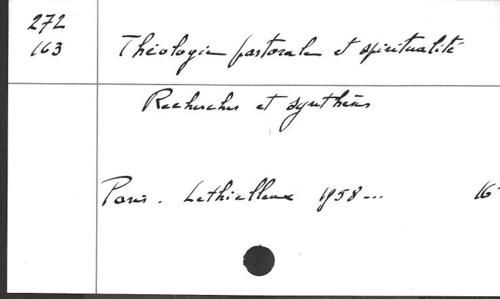 272
163
Théologie pastorale et spiritualité
Recherches et synthèses
Paris. Lethielleux 1958... 16°